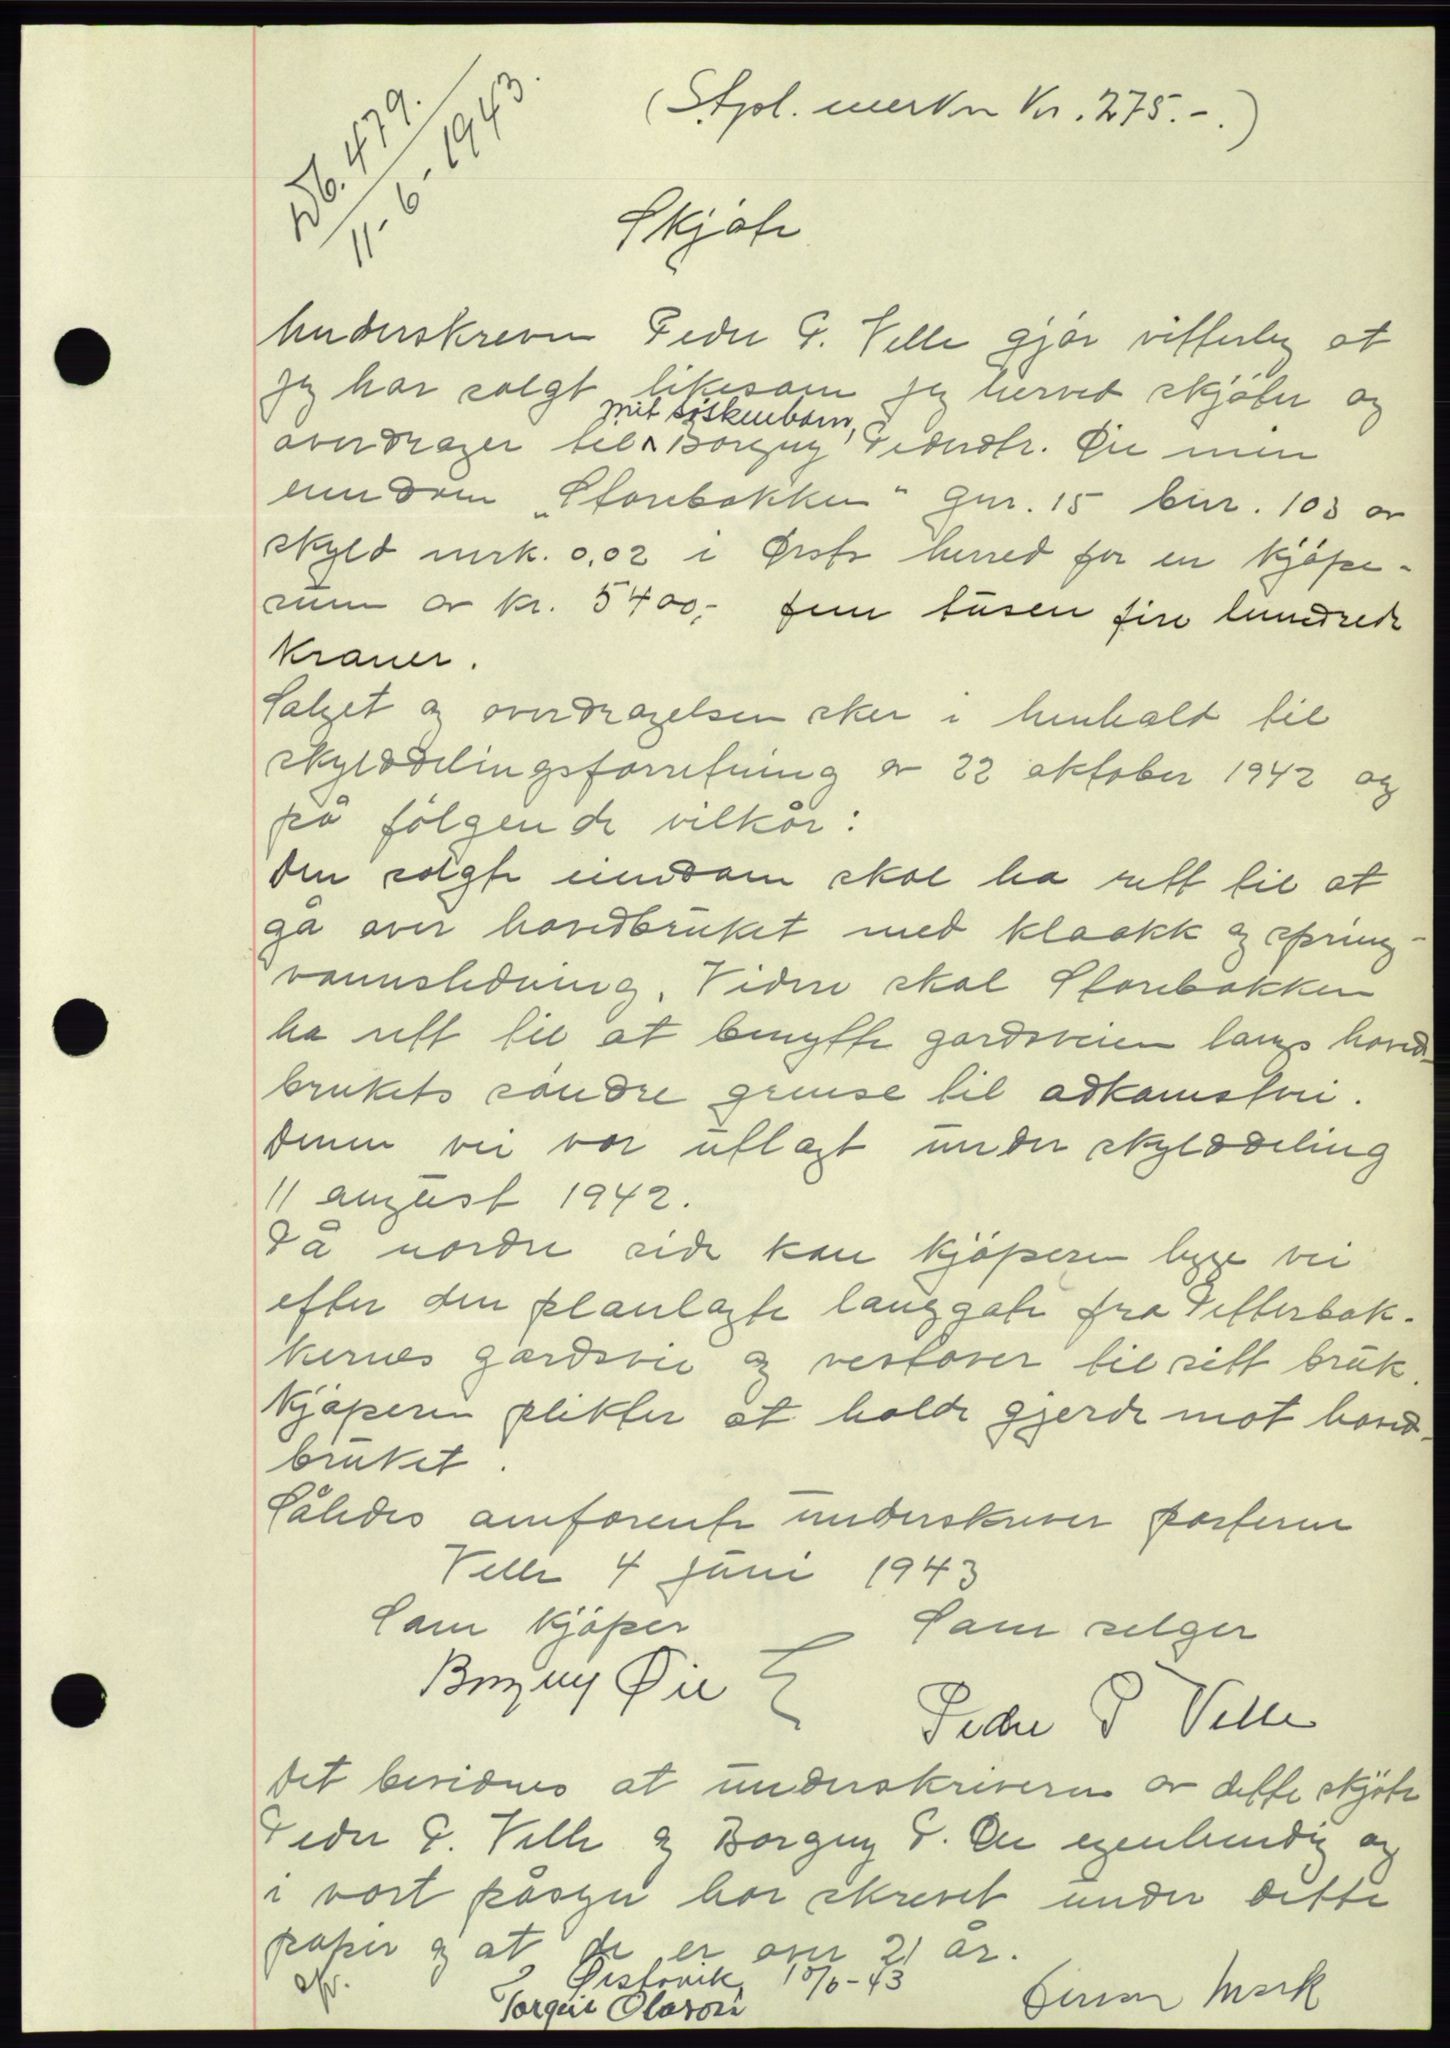 Db. 479.
11-6-1943.
(Stpl. merker Kr. 275.-.)
Skjøte
Underskreven Peder P. Velle gjør vitterleg at
jeg har solgt likesom jeg herved skjøter og
mit søskenbarn,
overdrager til ^ Borgny Pedersdtr. Øie min
eiendom „Storebakken" gnr. 15 bnr. 103 av
skyld mrk. 0,02 i Ørsta herred for en kjøpe-
sum av kr. 5400,- fem tusen fire hundrede
kroner.
Salget og overdragelsen sker i henhold til
skylddelingsforretning av 22 oktober 1942 og
på følgende vilkår:
Den solgte eiendom skal ha rett til at
gå over hovedbruket med kloakk og spring-
vannsledning. Videre skal Storebakken
ha rett til at benytte gardsveien langs hoved-
brukets søndre grense til adkomstvei.
Denne vei var utlagt under skylddeling
11 august 1942.
På nordre side kan kjøperen bygge vei
efter den planlagte langgate fra Petterbak-
kernes gardsvei og vestover til sitt bruk.
Kjøperen plikter at holde gjerde mot hoved-
bruket.
Således omforente underskriver parterne
Velle 4 juni 1943
Som kjøper
Som selger
Borgny Øie
Peder P Velle
Det bevidnes at underskriverne av dette skjøte
Peder P. Velle og Borgny P. Øie egenhendig og
i vort påsyn har skrevet under dette
papir og at de er over 21 år.
Ørstavik 10/6-43
Torgeir Olavson
Einar Mork